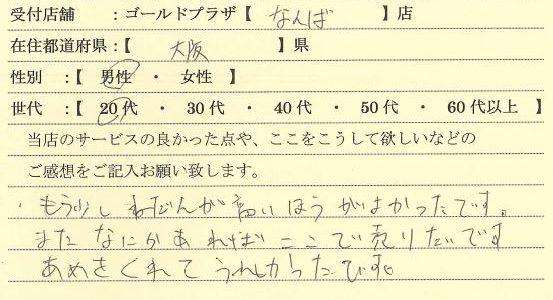 受付店舗 :ゴールドプラザ【 なんば 】店
在住都道府県:【 大阪 】県
性別 :【 男性 ・ 女性 】
世代 :【 20代 ・ 30代 ・ 40代 ・ 50代 ・ 60代以上 】
当店のサービスの良かった点や、ここをこうして欲しいなどの
ご感想をご記入お願い致します。
・もう少しねだんが高いほうがよかったです。
またなにかあればここで売りたいです
あめをくれてうれしかったです。